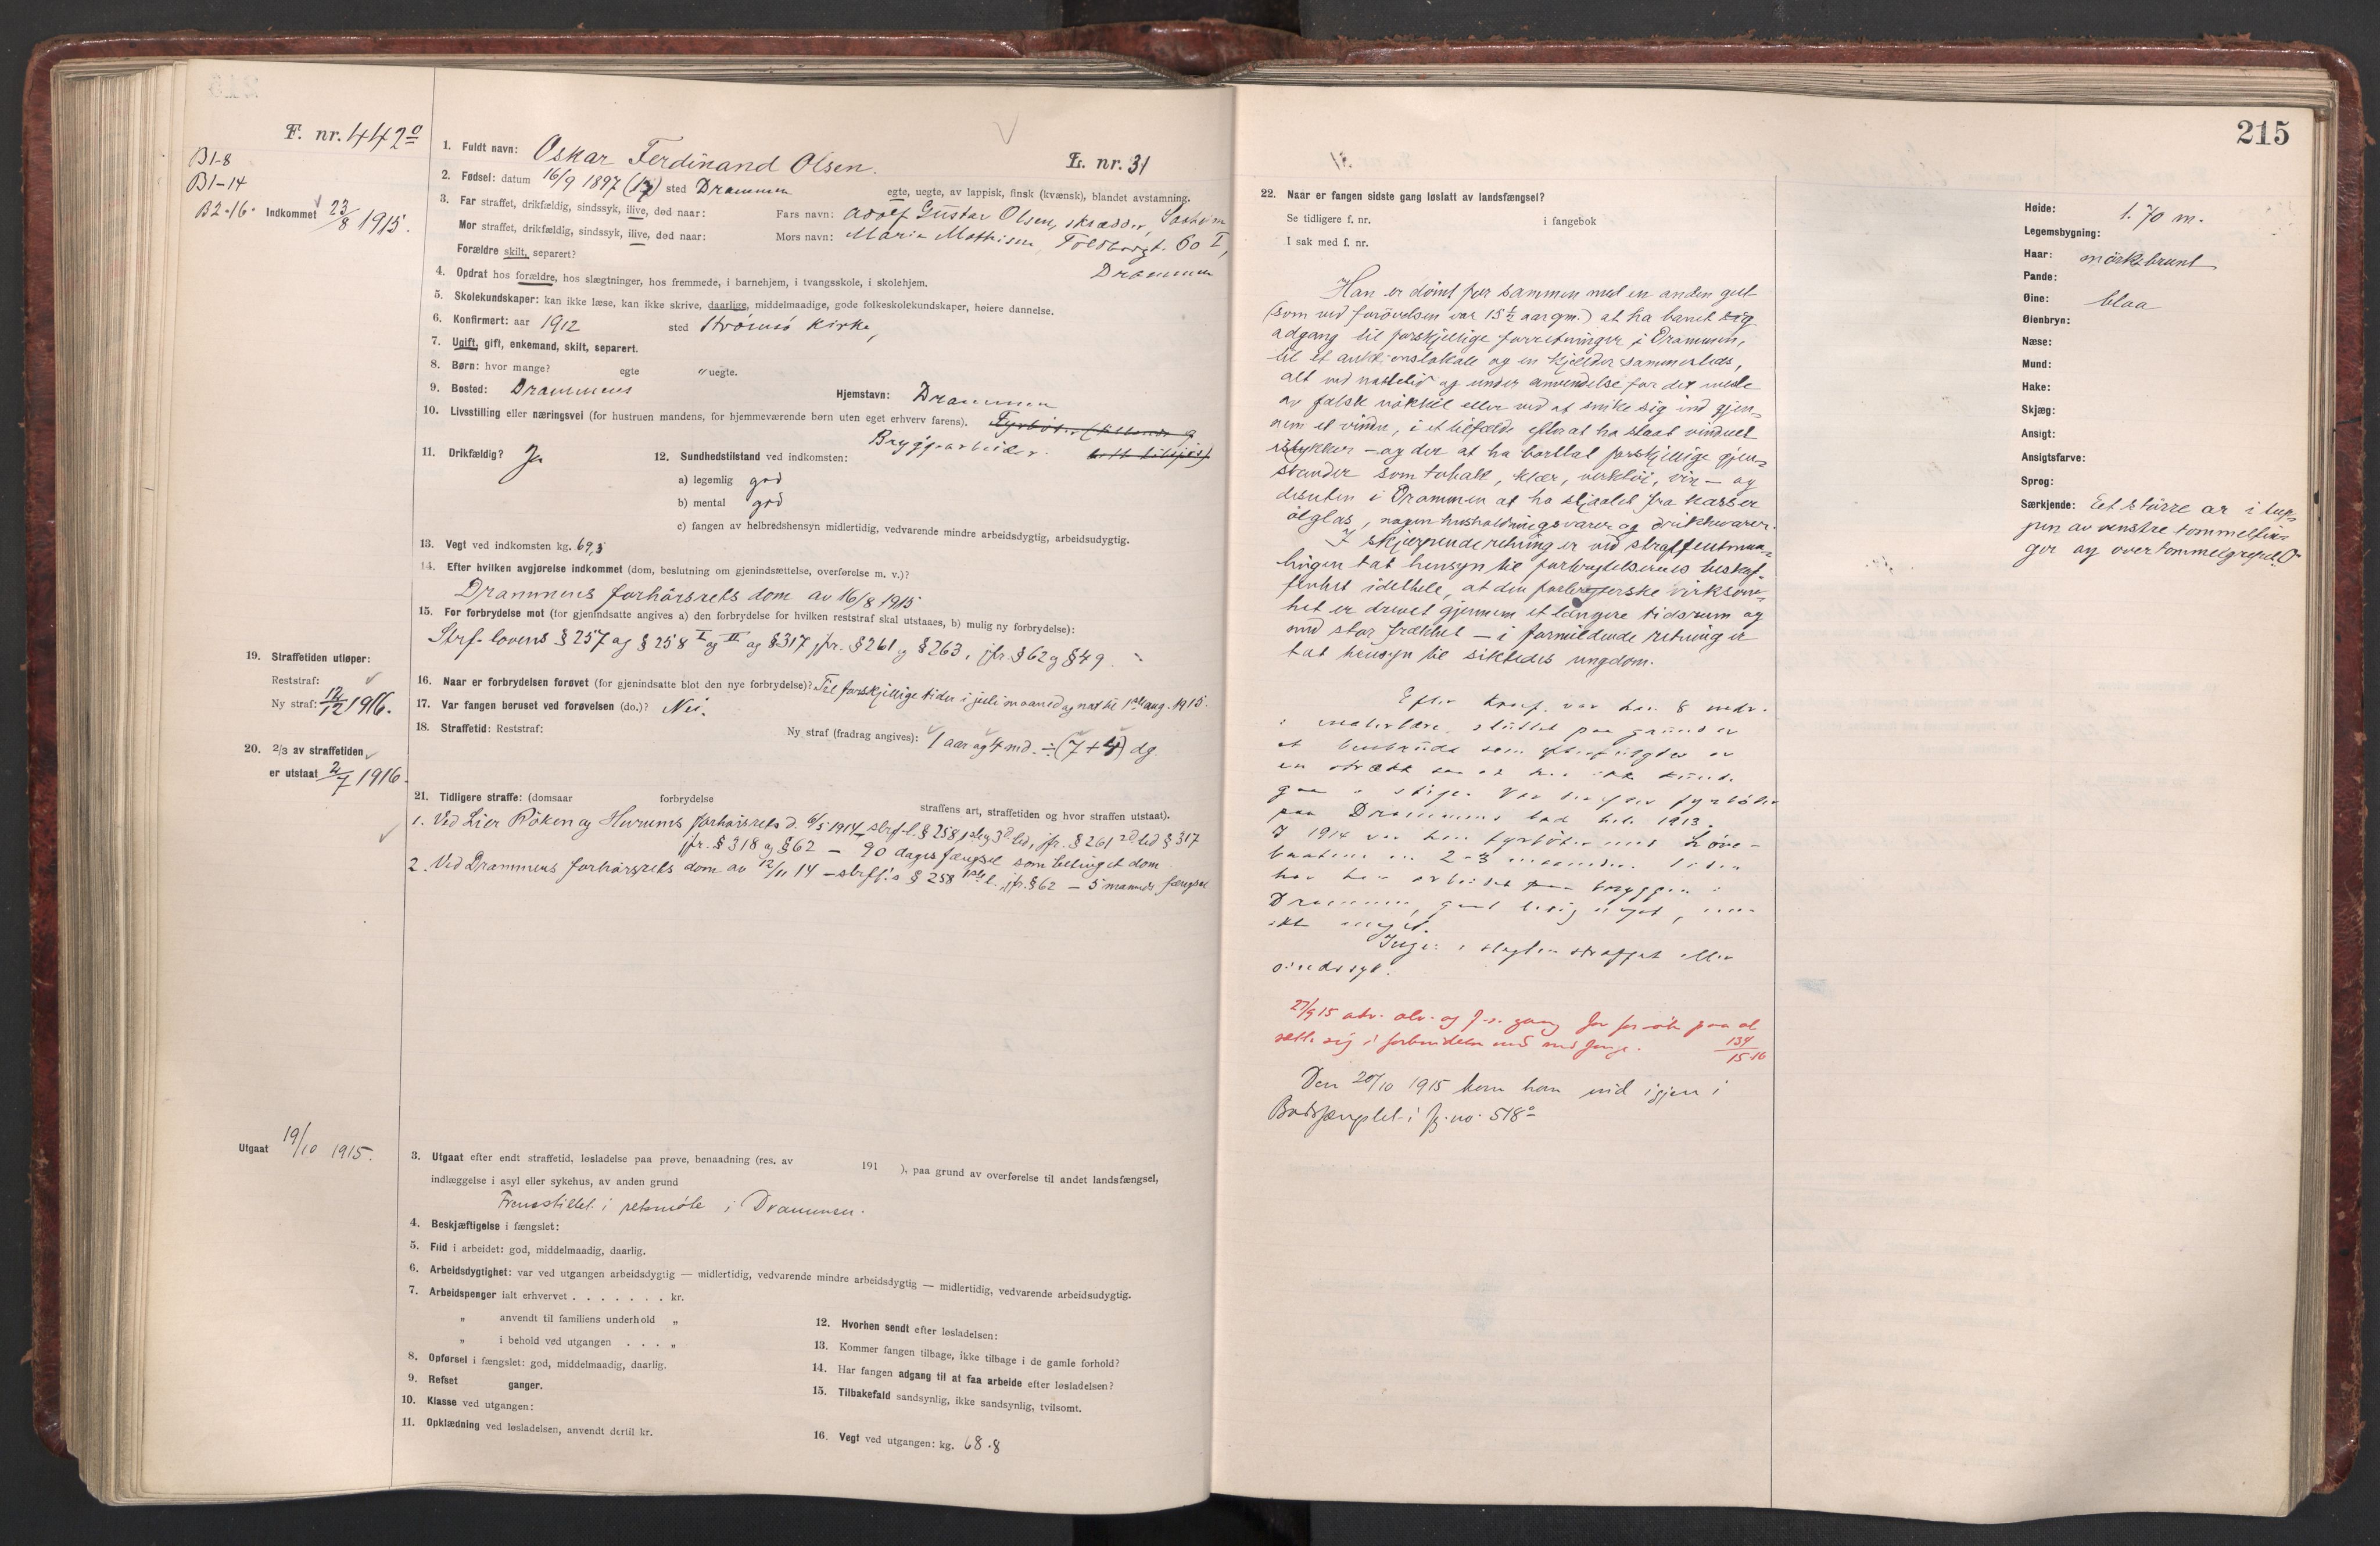 F. nr. 442º
B1-8
B1-14
B2-16. Indkommet 23/8 1915.
L. nr. 31
1. Fuldt navn: Oskar Ferdinand Olsen.
2. Fødsel: datum 16/9 1897 (17) sted Drammen
egte, uegte, av lappisk, finsk (kvænsk), blandet avstamning.
3. Far straffet, drikfældig, sindssyk, ilive, død naar: Fars navn: Adolf Gustav Olsen, skrædder,
Mor straffet, drikfældig, sindssyk, ilive, død naar: Mors navn: Marie Mathisen, Toldbodgt. 60 I,
Forældre skilt, separert? Drammen
4. Opdrat hos forældre, hos slægtninger, hos fremmede, i barnehjem, i tvangsskole, i skolehjem.
5. Skolekundskaper: kan ikke læse, kan ikke skrive, daarlige, middelmaadige, gode folkeskolekundskaper, høiere dannelse.
6. Konfirmert: aar 1912 sted Strømsö Kirke,
7. Ugift, gift, enkemand, skilt, separert.
8. Børn: hvor mange? egte " uegte.
9. Bosted: Drammens Hjemstavn: Drammen
10. Livsstilling eller næringsvei (for hustruen mandens, for hjemmeværende børn uten eget erhverv farens). Fyrböter
Bryggearbeider.
11. Drikfældig? Ja
12. Sundhedstilstand ved indkomsten:
a) legemlig god
b) mental god
c) fangen av helbredshensyn midlertidig, vedvarende mindre arbeidsdygtig, arbeidsudygtig.
13. Vegt ved indkomsten kg. 69,3
14. Efter hvilken avgjørelse indkommet (dom, beslutning om gjenindsættelse, overførelse m. v.)?
Drammens forhörsrets dom av 16/8 1915
15. For forbrydelse mot (for gjenindsatte angives a) den forbrydelse for hvilken reststraf skal utstaaes, b) mulig ny forbrydelse):
Strf-lovens § 257 og § 258 I og II og § 317, jfr. § 261 og § 263, jfr. § 62 og § 49.
16. Naar er forbrydelsen forøvet (for gjenindsatte blot den nye forbrydelse)? Til forskjellige tider i juli maaned og nat til 1ste aug. 1915.
17. Var fangen beruset ved forøvelsen (do.)? Nei.
18. Straffetid: Reststraf: Ny straf (fradrag angives): 1 aar og 4 md. ÷ (7 + 4) dg.
19. Straffetiden utløper:
Reststraf:
Ny straf: 12/12 1916.
20. 2/3 av straffetiden
er utstaat 2/7 1916.
21. Tidligere straffe: (domsaar forbrydelse straffens art, straffetiden og hvor straffen utstaat).
1. Ved Lier Röken og Hurums forhörsrets d. 6/5 1914 – strf-l. § 258, 1ste og 3d led, jfr. § 261 2d led § 317
jfr. § 318 og § 62 – 90 dages fængsel som betinget dom
2. Ved Drammens forhörsrets dom av 12/11 14 – strfl.'s § 258 1ste l. jfr. § 62 – 5 maaneds fængsel
Utgaat 19/10 1915.
3. Utgaat efter endt straffetid, løsladelse paa prøve, benaadning (res. av 191 ), paa grund av overførelse til andet landsfængsel,
indlæggelse i asyl eller sykehus, av anden grund
Fremstillet i retsmöte i Drammen.
4. Beskjæftigelse i fængslet:
5. Flid i arbeidet: god, middelmaadig, daarlig.
6. Arbeidsdygtighet: var ved utgangen arbeidsdygtig — midlertidig, vedvarende mindre arbeidsdygtig — midlertidig, vedvarende arbeidsudygtig.
7. Arbeidspenger ialt erhvervet . . . . . . . kr.
" anvendt til familiens underhold "
" i behold ved utgangen . . . "
8. Opførsel i fængslet: god, middelmaadig, daarlig.
9. Refset ganger.
10. Klasse ved utgangen:
11. Opklædning ved løsladelsen, anvendt dertil kr.
12. Hvorhen sendt efter løsladelsen:
13. Kommer fangen tilbage, ikke tilbage i de gamle forhold?
14. Har fangen adgang til at faa arbeide efter løsladelsen?
15. Tilbakefald sandsynlig, ikke sandsynlig, tvilsomt.
16. Vegt ved utgangen: kg. 68.8
215
22. Naar er fangen sidste gang løslatt av landsfængsel?
Se tidligere f. nr. i fangebok
I sak med f. nr.
Han er dömt for sammen med en anden gut
(som ved forövelsen var 15 ½ aar gm.) at ha banet sig
adgang til forskjellige forretninger i Drammen,
til et auktionslokale og en kjelder sammesteds,
alt ved nattetid og under anvendelse for det meste
av falsk nökkel eller ved at snike sig ind gjen-
nem et vindu, i et tilfælde efter at ha slaat vinduet
istykker – og der at ha borttat forskjellige gjen-
stander som tobakk, klær, verktöi, vin – og
desuten i Drammen at ha stjaalet fra kasser
ölglas, nogen husholdningsvarer og drikkevarer.
I skjerpende retning er ved straffeutmaa-
lingen tat hensyn til forbrydelsernes beskaf-
fenhet idethele, at den forbryterske virksom-
het er drevet gjennem et længere tidsrum og
med stor frækhet – i formildende retning er
tat hensyn til siktedes ungdom.
Efter konf. var han 8 mdr.
i malerlære, sluttet paa grund av
et benbrudd som
en
gaa i stiger. Var fyrböter
paa Drammens bad hele 1913.
I 1914 var han fyrböter med Löve-
baatene en 2-3 maaneder. Siden
har han arbeidet paa bryggen i
Drammen,
ikke meget.
Ingen i slegten straffet eller
sindssyk.
27/9 15 adv. alv. og gang for forsök paa at
sette sig i forbindelse med med fange. 134/15-16
Den 20/10 1915 kom han ind igjen i
Bodsfængslet i fg. no. 518º
Høide: 1.70 m.
Legemsbygning:
Haar: mörkebrunt
Pande:
Øine: blaa
Øienbryn:
Næse:
Mund:
Hake:
Skjæg:
Ansigt:
Ansigtsfarve:
Sprog:
Særkjende: Eet större ar i tup-
pen av venstre tommelfin-
ger og over tommelgrepet